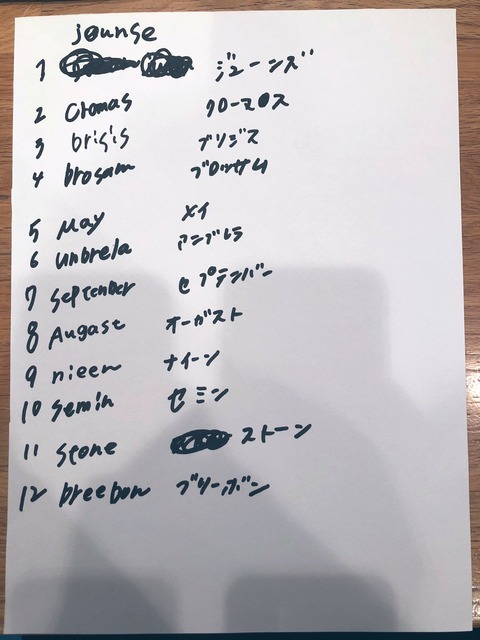 jounse
1 ジューンズ
2 cromas クローマス
3 brisis ブリジス
4 brosam ブロッサム
5 May メイ
6 unbrela アンブレラ
7 september セプテンバー
8 August オーガスト
9 nieen ナイーン
10 semin セミン
11 stone ストーン
12 breebon ブリーボン